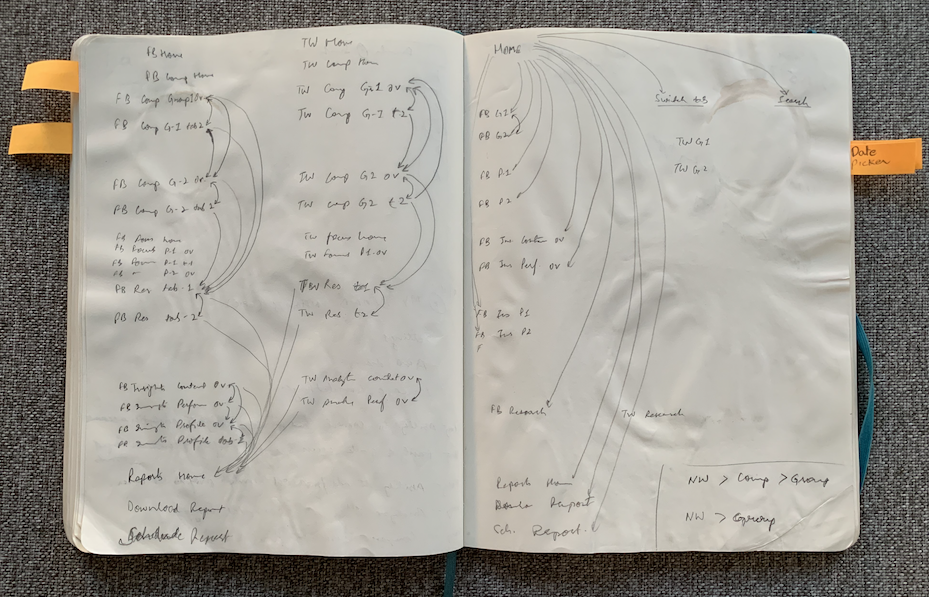 FB Home
FB Comp Home
FB Comp Group1 Ov
FB Comp G-1 tab2
FB Comp G-2 ov
FB Comp G-2 tab 2
FB Focus home
FB Focus P-1 ov
FB P-2 ov
FB Res tab-1
FB Res tab-2
FB Insights Content Ov
FB Insights Perform Ov
FB Insights Profile Ov
FB Insights Profile tab
Reports Home
Download Report
Schedule Report
TW Home
TW Comp Hom
TW Comp Gr1 ov
TW Comp G-1 t2
TW Comp G2 ov
TW Comp G2 t2
TW focus home
TW focus P1-ov
TW Res tab1
TW Res t2
TW Analytic content ov
TW Perf ov
HOME
FB G1
FB G2
FB P.1
FB P.2
FB Ins. Content ov
FB Ins Perf ov
FB Ins P1
FB Ins P2
F
FB Research
Reports Hom
Report
Sch. Report
Switch to B
Search
TW G1
TW G2
TW Research
NW > Comp > Group
NW > Group
Date
Picker